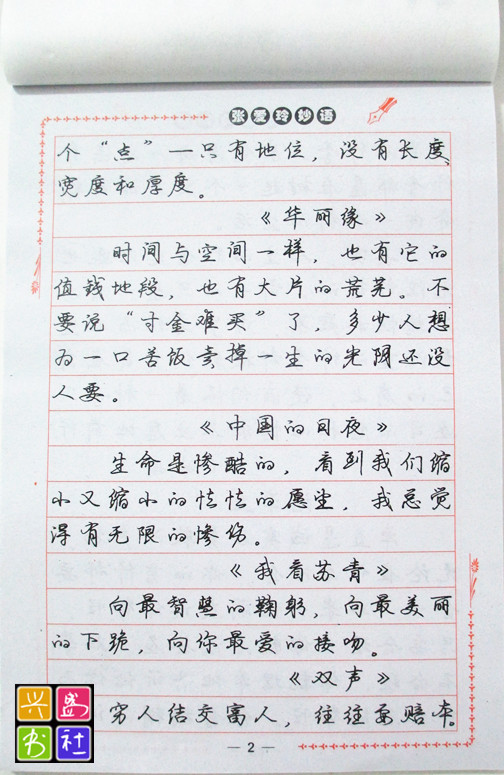 张爱玲妙语
个“点”—只有地位，没有长度、
宽度和厚度。
《华丽缘》
时间与空间一样，也有它的
值钱地段，也有大片的荒芜。不
要说“寸金难买”了，多少人想
为一口苦饭卖掉一生的光阴还没
人要。
《中国的日夜》
生命是惨酷的，看到我们缩
小又缩小的怯怯的愿望，我总觉
得有无限的惨伤。
《我看苏青》
向最智慧的鞠躬，向最美丽
的下跪，向你最爱的接吻。
《双声》
穷人结交富人，往往要赔本。
— 2 —
兴尚
书社